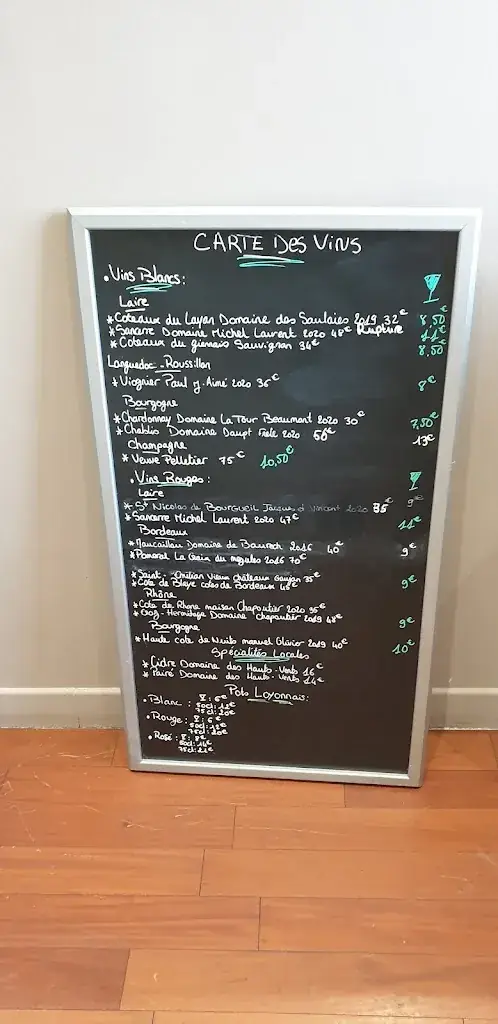 CARTE DES VINS
• Vins Blancs :
Loire
* Coteaux du Layon Domaine des Saulaies 2019 32€ 8,50€
* Sancerre Domaine Michel Laurent 2020 48€ Rupture 11€
* Coteaux du giennois Sauvignon 34€ 8,50€
Languedoc-Roussillon
* Viognier Paul J. Aimé 2020 36€ 8€
Bourgogne
* Chardonnay Domaine La Tour Beaumont 2020 30€ 7,50€
* Chablis Domaine Daupt 2020 50€ 13€
Champagne
* Veuve Pelletier 75€ 10,50€
• Vins Rouges :
Loire
* St Nicolas de Bourgueil Jacques et Vincent 2020 35€ 9€
* Sancerre Michel Laurent 2020 47€ 11€
Bordeaux
* Maucaillou Domaine de 2016 40€ 9€
* Pomerol La Croix du 2016 70€
* Saint-Emilion Vieux Châteaux 35€
* Côte de Blaye cotes de Bordeaux 45€ 9€
Rhône
* Cote de Rhone maison Chapoutier 2020 35€
* Croz-Hermitage Domaine Chapoutier 2019 48€ 9€
Bourgogne
* Haute cote de Nuits manuel Olivier 2019 40€ 10€
Spécialités Locales
* Cidre Domaine des Hauts-Vents 16€
* Poiré Domaine des Hauts-Vents 14€
Pots Lyonnais :
• Blanc : : 6€
50cl : 12€
75cl : 20€
• Rouge : : 6€
50cl : 12€
75cl : 20€
• Rosé : : 8€
50cl : 14€
75cl : 22€